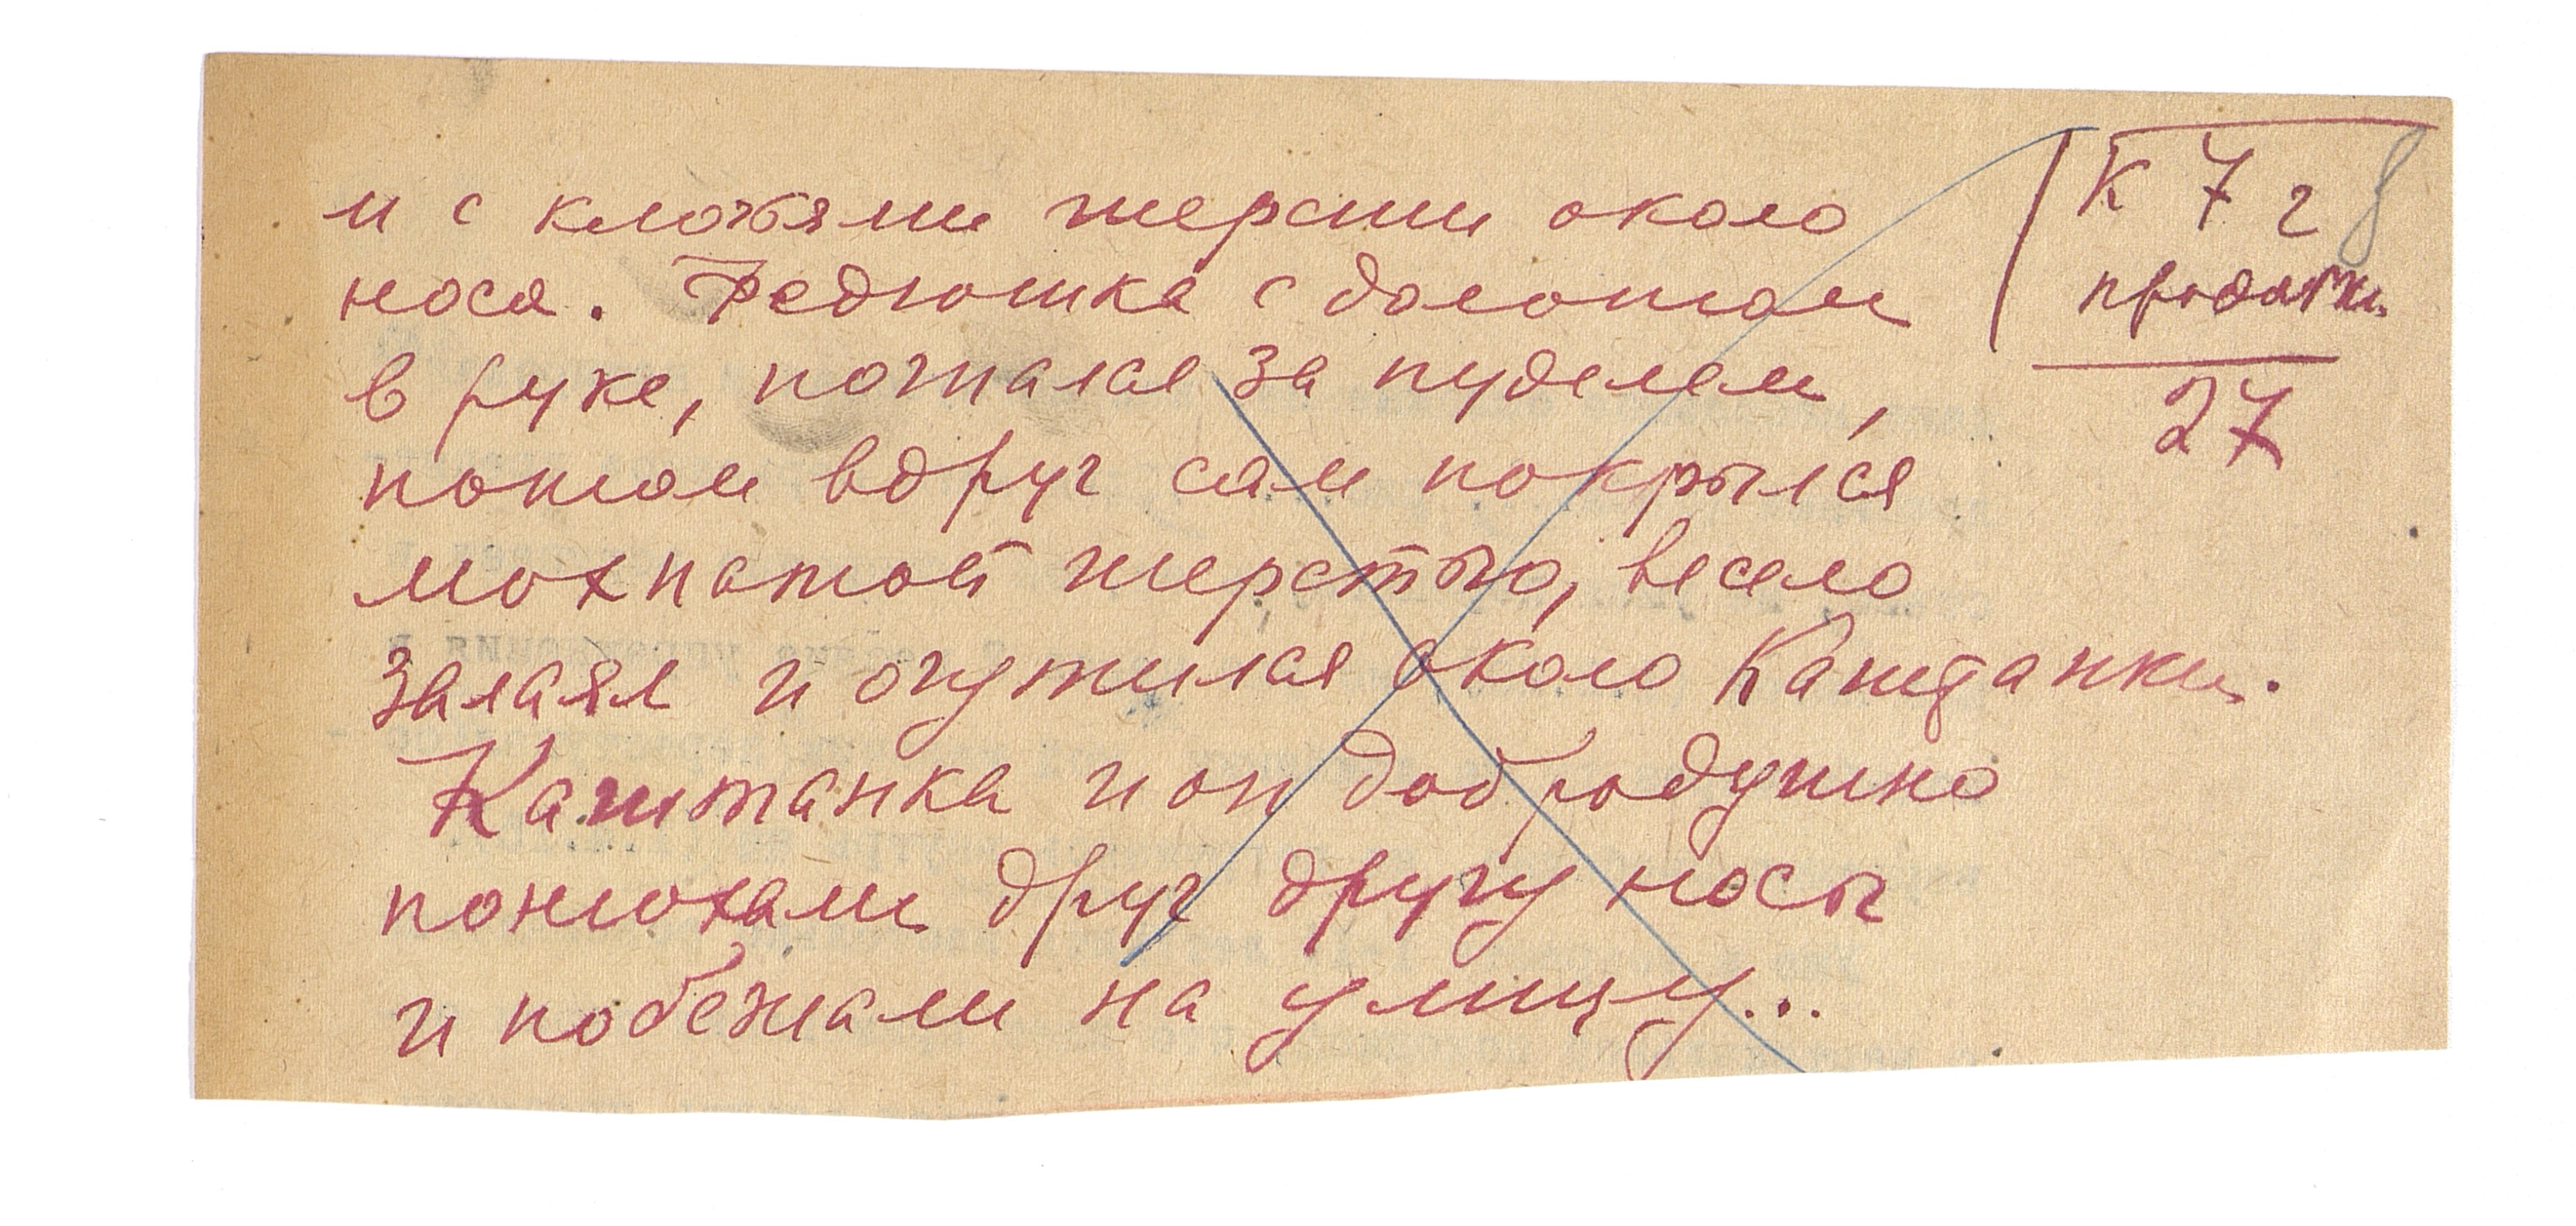 и с клочьями шерсти около
носа. Федюшка с долотом
в руке, погнался за пуделем,
потом вдруг сам покрылся
мохнатой шерстью, весело
залаял и очутился около Каштанки.
Каштанка и он добродушно
понюхали друг другу носы
и побежали на улицу...
К 7 г
27